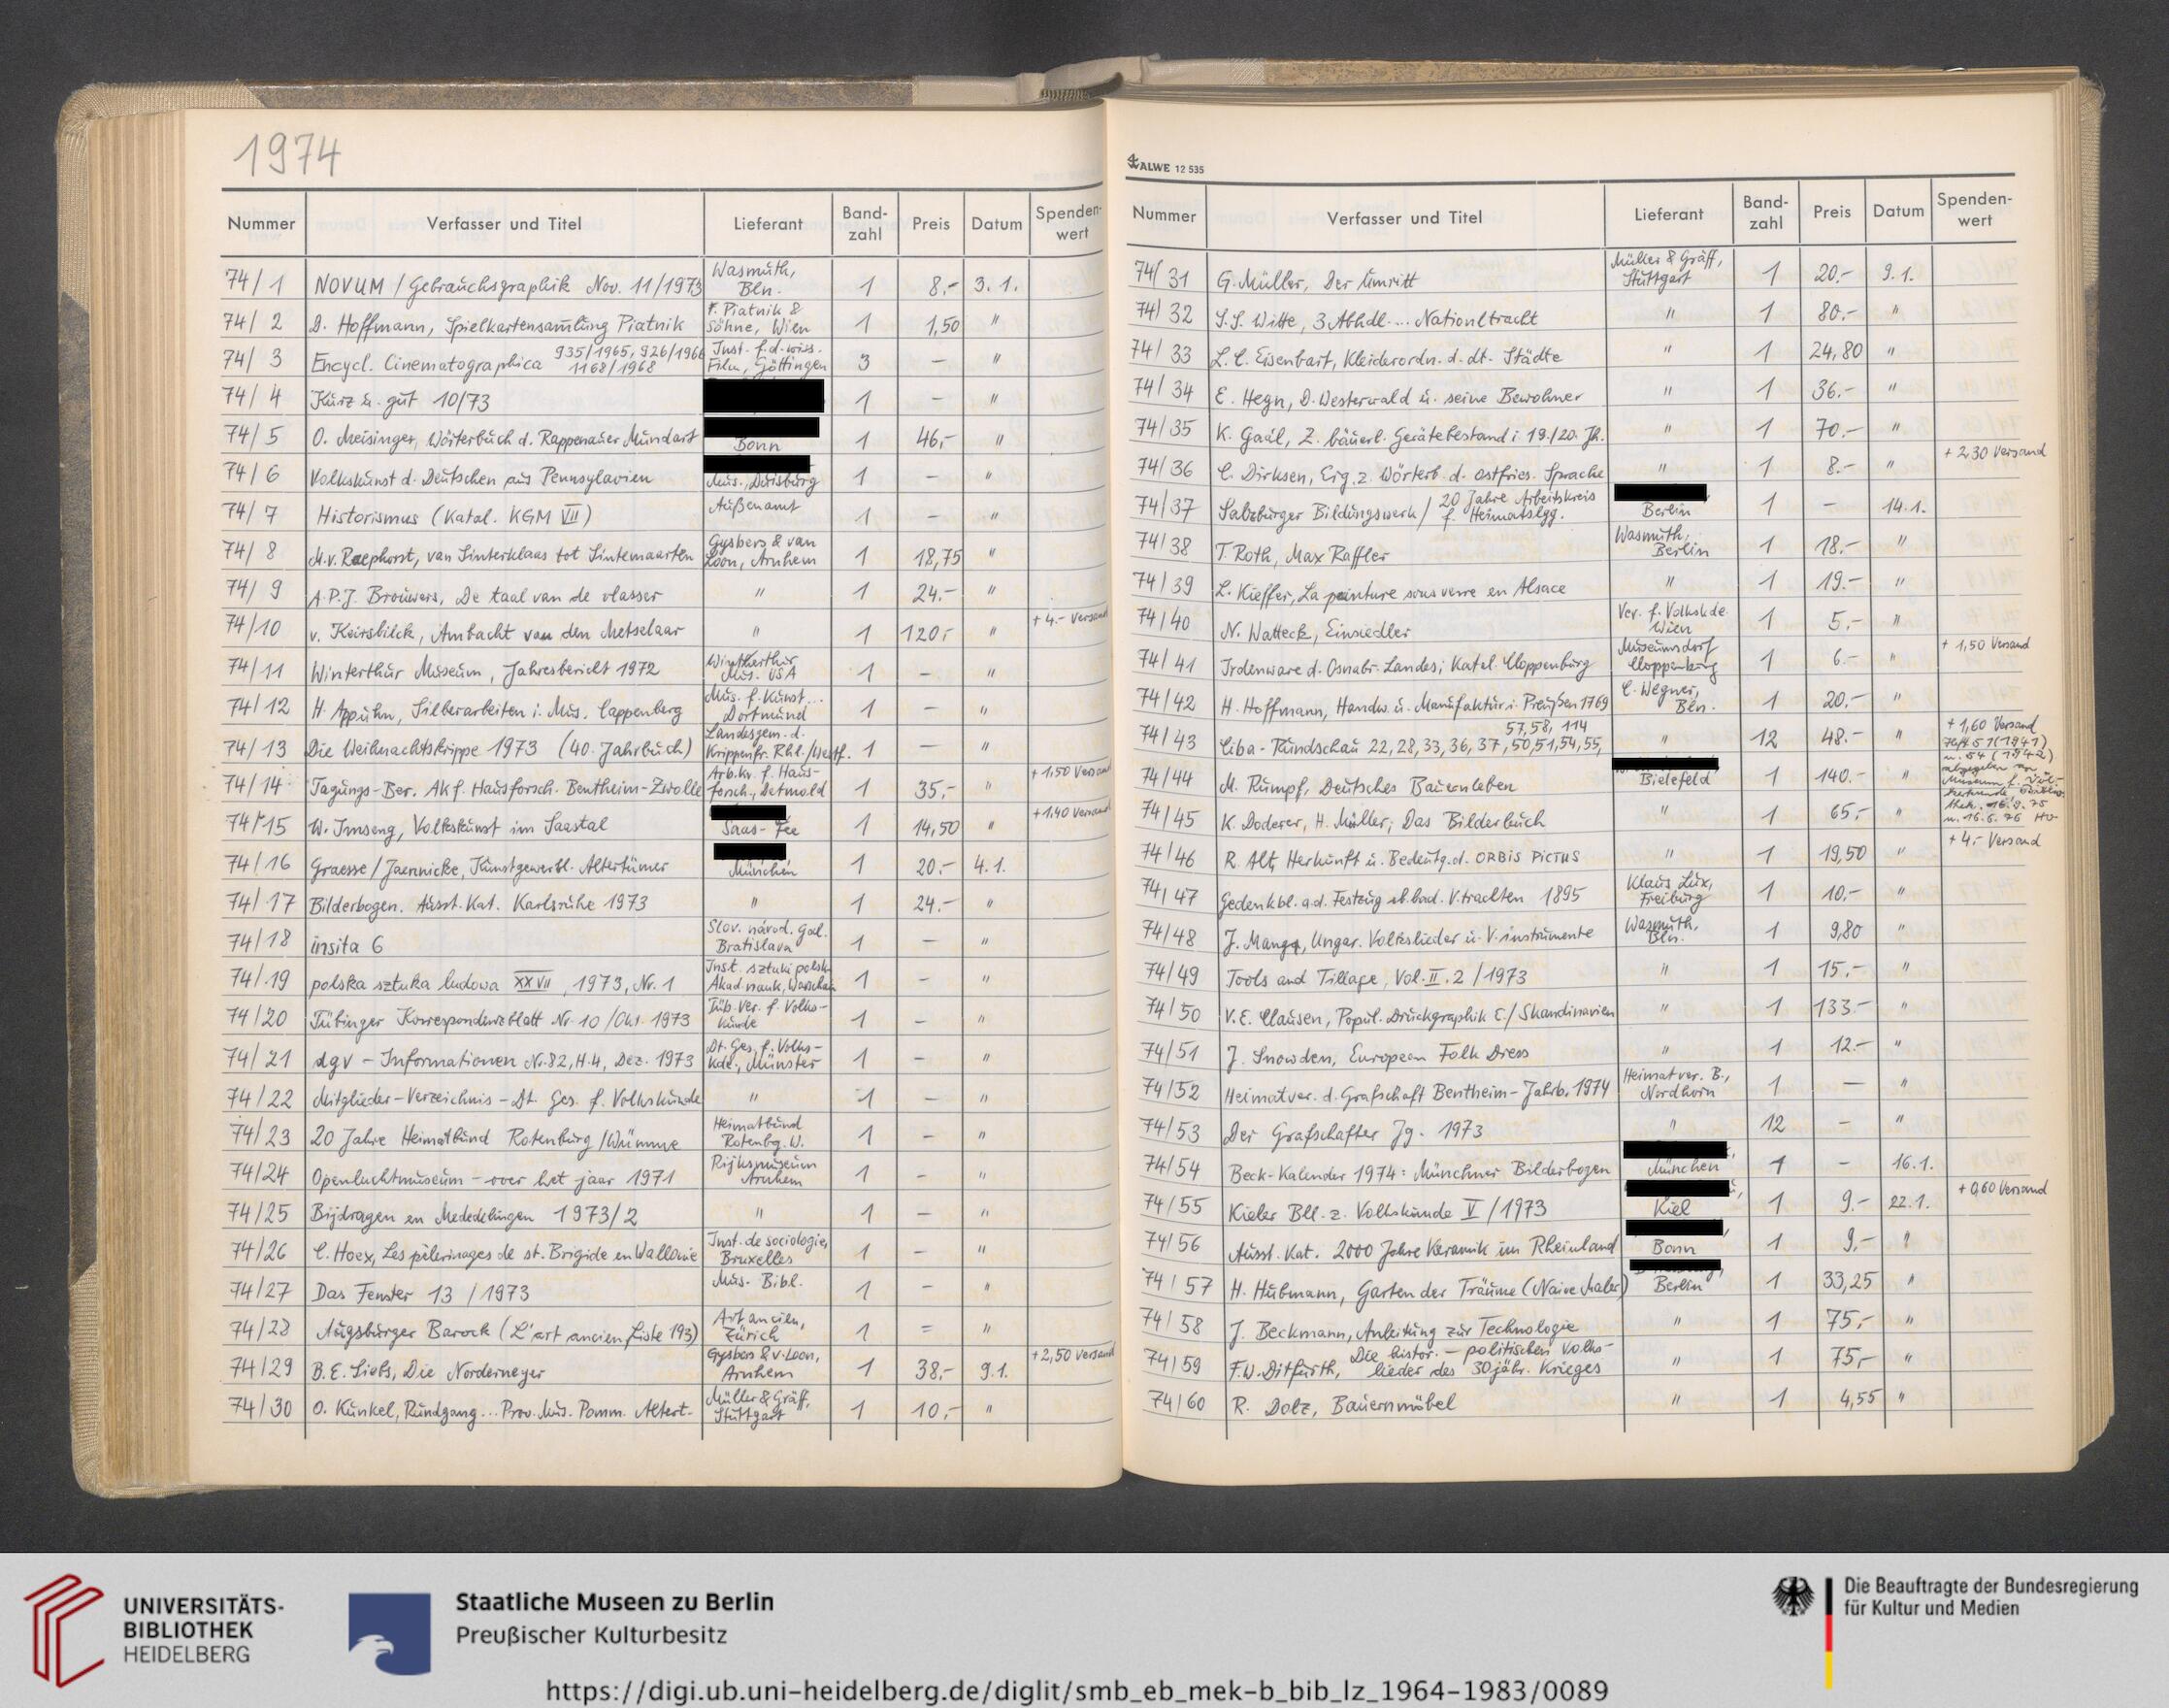 1974
Nummer Verfasser und Titel Lieferant Band-zahl Preis Datum Spenden-wert
74/1 NOVUM / Gebrauchsgraphik Nov. 11/1973 Wasmuth, Bln. 1 8,- 3.1.
74/2 D. Hoffmann, Spielkartensammlung Piatnik F. Piatnik & Söhne, Wien 1 1,50 "
74/3 Encycl. Cinematographica 935/1965, 926/1966 1168/1968 Inst. f. d. wiss. Film, Göttingen 3 — "
74/4 Kurz u. gut 10/73 1 — "
74/5 O. Meisinger, Wörterbuch d. Rappenauer Mundart Bonn 1 46,- "
74/6 Volkskunst d. Deutschen aus Pennsylavien Mus., Duisburg 1 — "
74/7 Historismus (Katal. KGM VII) Außenamt 1 — "
74/8 M.v. Raephorst, van Sinterklaas tot Sintemaarten Gysbers & van Loon, Arnhem 1 18,75 "
74/9 A.P.J. Brouwers, De taal van de vlasser " 1 24.- "
74/10 v. Keirsbilck, Ambacht van den Metselaar " 1 120,- " + 4.- Versand
74/11 Winterthur Museum, Jahresbericht 1972 Winterthur Mus. USA 1 — "
74/12 H. Appuhn, Silberarbeiten i. Mus. Cappenberg Mus. f. Kunst... Dortmund 1 — "
74/13 Die Weihnachtskrippe 1973 (40. Jahrbuch) Landesgem. d. Krippenfr. Rhl./Westf. 1 — "
74/14 Tagungs-Ber. Ak f. Hausforsch. Bentheim-Zwolle Arb.kr. f. Haus-forsch., Detmold 1 35,- " + 1,50 Versand
74/15 W. Imseng, Volkskunst im Saastal Saas-Fee 1 14,50 " + 1,40 Versand
74/16 Graesse/Jaennicke, Kunstgewerbl. Altertümer München 1 20.- 4.1.
74/17 Bilderbogen. Ausst. Kat. Karlsruhe 1973 " 1 24.- "
74/18 insita 6 Slov. národ. gal. Bratislava 1 — "
74/19 polska sztuka ludowa XXVII, 1973, Nr. 1 Inst. sztuki polsk. Akad. nauk, Warschau 1 — "
74/20 Tübinger Korrespondenzblatt Nr. 10/Okt. 1973 Tüb. Ver. f. Volks-kunde 1 — "
74/21 dgv - Informationen Nr. 82, H.4, Dez. 1973 Dt. Ges. f. Volks-kde., Münster 1 — "
74/22 Mitglieder-Verzeichnis - Dt. Ges. f. Volkskunde " 1 — "
74/23 20 Jahre Heimatbund Rotenburg/Wümme Heimatbund Rotenbg. W. 1 — "
74/24 Openluchtmuseum - over het jaar 1971 Rijksmuseum Arnhem 1 — "
74/25 Bijdragen en Mededelingen 1973/2 " 1 — "
74/26 C. Hoex, Les pèlerinages de st. Brigide en Wallonie Inst. de sociologie, Bruxelles 1 — "
74/27 Das Fenster 13 / 1973 Mus. Bibl. 1 — "
74/28 Augsburger Barock (L'art ancien, Liste 193) Art ancien, Zürich 1 = "
74/29 B.E. Siebs, Die Norderneyer Gysbers & v. Loon, Arnhem 1 38,- 9.1. + 2,50 Versand
74/30 O. Kunkel, Rundgang... Prov. Mus. Pomm. Altert. Müller & Gräff, Stuttgart 1 10,- "
ALWE 12 535
Nummer Verfasser und Titel Lieferant Band-zahl Preis Datum Spenden-wert
74/31 G. Müller, Der Umritt Müller & Gräff, Stuttgart 1 20.- 9.1.
74/32 S.S. Witte, 3 Abhdl.... Nationltracht " 1 80.- "
74/33 L.C. Eisenbart, Kleiderordn. d. dt. Städte " 1 24,80 "
74/34 E. Hegn, D. Westerwald u. seine Bewohner " 1 36.- "
74/35 K. Gaál, Z. bäuerl. Gerätebestand i. 19./20. Jh. " 1 70.- "
74/36 C. Dirksen, Erg. z. Wörterb. d. ostfries. Sprache " 1 8.- " + 2,30 Versand
74/37 Salzburger Bildungswerk / 20 Jahre Arbeitskreis f. Heimatslgg. Berlin 1 — 14.1.
74/38 T. Roth, Max Raffler Wasmuth, Berlin 1 18.- "
74/39 L. Kieffer, La peinture sous verre en Alsace " 1 19.- "
74/40 N. Watteck, Einsiedler Ver. f. Volkskde Wien 1 5.- "
74/41 Irdenware d. Osnabr. Landes; Katal. Cloppenburg Museumsdorf Cloppenburg 1 6.- " + 1,50 Versand
74/42 H. Hoffmann, Handw. u. Manufaktur i. Preußen 1769 C. Wegner, Bln. 1 20.- "
74/43 Ciba-Rundschau 22, 28, 33, 36, 37, 50, 51, 54, 55, 57, 58, 114 " 12 48.- " + 1,60 Versand
Heft 51 (1941) u. 54 (1942) abgegeben
16.9.75
u. 16.6.76
74/44 M. Rumpf, Deutsches Bauernleben Bielefeld 1 140.- "
74/45 K. Doderer, H. Müller; Das Bilderbuch " 1 65,- "
74/46 R. Alt, Herkunft u. Bedeutg. d. ORBIS PICTUS " 1 19,50 " + 4,- Versand
74/47 Gedenkbl. a.d. Festzug d. bad. V.trachten 1895 Klaus Lux, Freiburg 1 10,- "
74/48 J. Manga, Ungar. Volkslieder u. V.instrumente Wasmuth, Bln. 1 9,80 "
74/49 Tools and Tillage, Vol. II. 2 / 1973 " 1 15,- "
74/50 V.E. Clausen, Popul. Druckgraphik E./Skandinavien " 1 133.- "
74/51 J. Snowden, European Folk Dress " 1 12.- "
74/52 Heimatver. d. Grafschaft Bentheim - Jahrb. 1974 Heimatver. B., Nordhorn 1 — "
74/53 Der Grafschafter Jg. 1973 " 12 — "
74/54 Beck-Kalender 1974: Münchner Bilderbogen München 1 — 16.1.
74/55 Kieler Bll. z. Volkskunde V / 1973 Kiel 1 9.- 22.1. + 0,60 Versand
74/56 Ausst. Kat. 2000 Jahre Keramik im Rheinland Bonn 1 9,- "
74/57 H. Hubmann, Garten der Träume (Naive Maler) Berlin 1 33,25 "
74/58 J. Beckmann, Anleitung zur Technologie " 1 75,- "
74/59 F.W. Ditfurth, Die histor.-politischen Volks-lieder des 30jähr. Krieges " 1 75,- "
74/60 R. Dolz, Bauernmöbel " 1 4,55 "
UNIVERSITÄTS-
BIBLIOTHEK
HEIDELBERG
Staatliche Museen zu Berlin
Preußischer Kulturbesitz
Die Beauftragte der Bundesregierung
für Kultur und Medien
https://digi.ub.uni-heidelberg.de/diglit/smb_eb_mek-b_bib_lz_1964-1983/0089